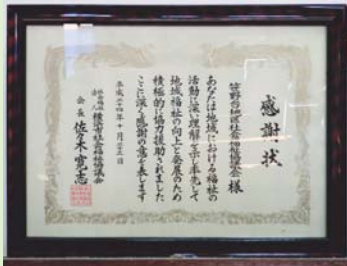 感謝状
笹野台地区社会福祉協議会 様
あなたは地域における福祉の
活動に深い理解を示し率先して
地域福祉の向上と発展のため
積極的に協力援助されました
ここに深く感謝の意を表します
平成二十四年十月二十五日
社会福祉法人 横浜市社会福祉協議会
会長 佐々木寛志